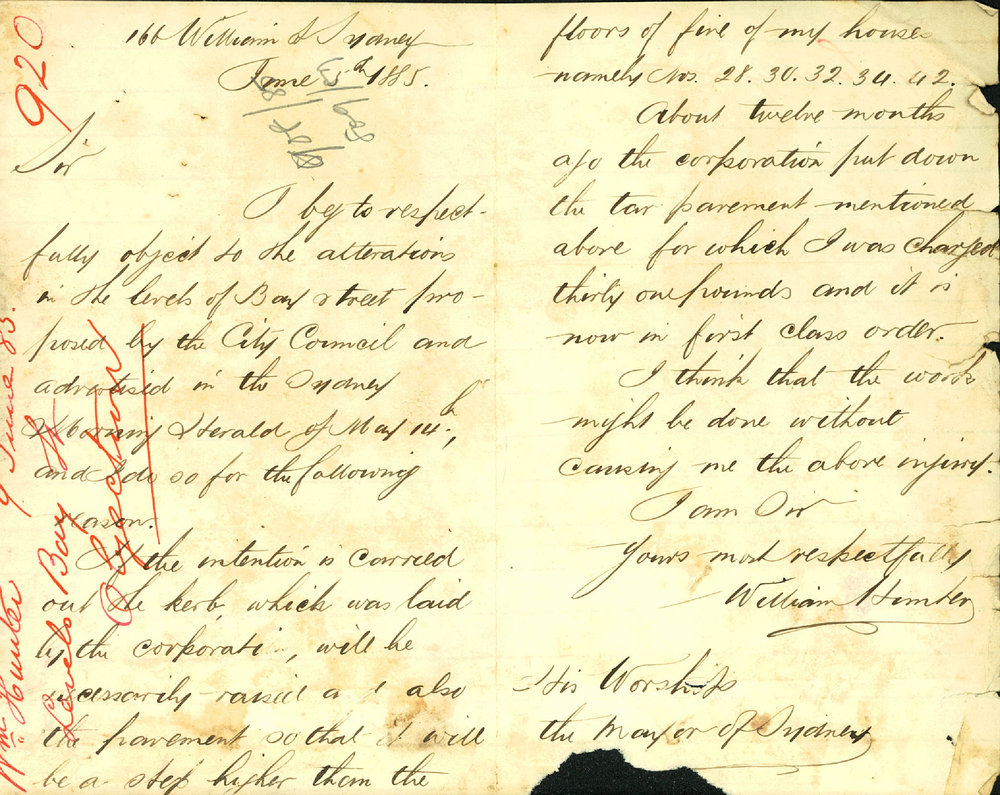 166 William St Sydney
June 5th 1885.
Sir
I beg to respect-
fully object to the alterations
in the levels of Bay street pro-
posed by the City Council and
advertised in the Sydney
Morning Herald of May 14th,
and I do so for the following
reason.
If the intention is carried
out the kerb which was laid
by the corporation, will be
necessarily raised and also
the pavement so that it will
be a step higher them the
floors of five of my houses
namely Nos. 28. 30. 32. 34. 42.
About twelve months
ago the corporation put down
the tar pavement mentioned
above for which I was charged
thirty one pounds and it is
now in first class order.
I think that the works
might be done without
causing me the above injury.
I am Sir
Yours most respectfully
William Hunter
His Worship
the Mayor of Sydney
920
Wm Hunter 9 June 85.
Levels Bay St
Objection